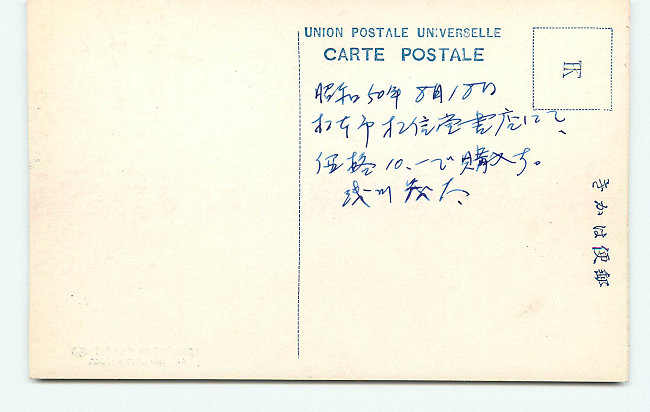 UNION POSTALE UNIVERSELLE
CARTE POSTALE
昭和50年8月18日
松本市松信堂書店にて、
価格10.-で購入す。
浅川茂太
きかは便郵